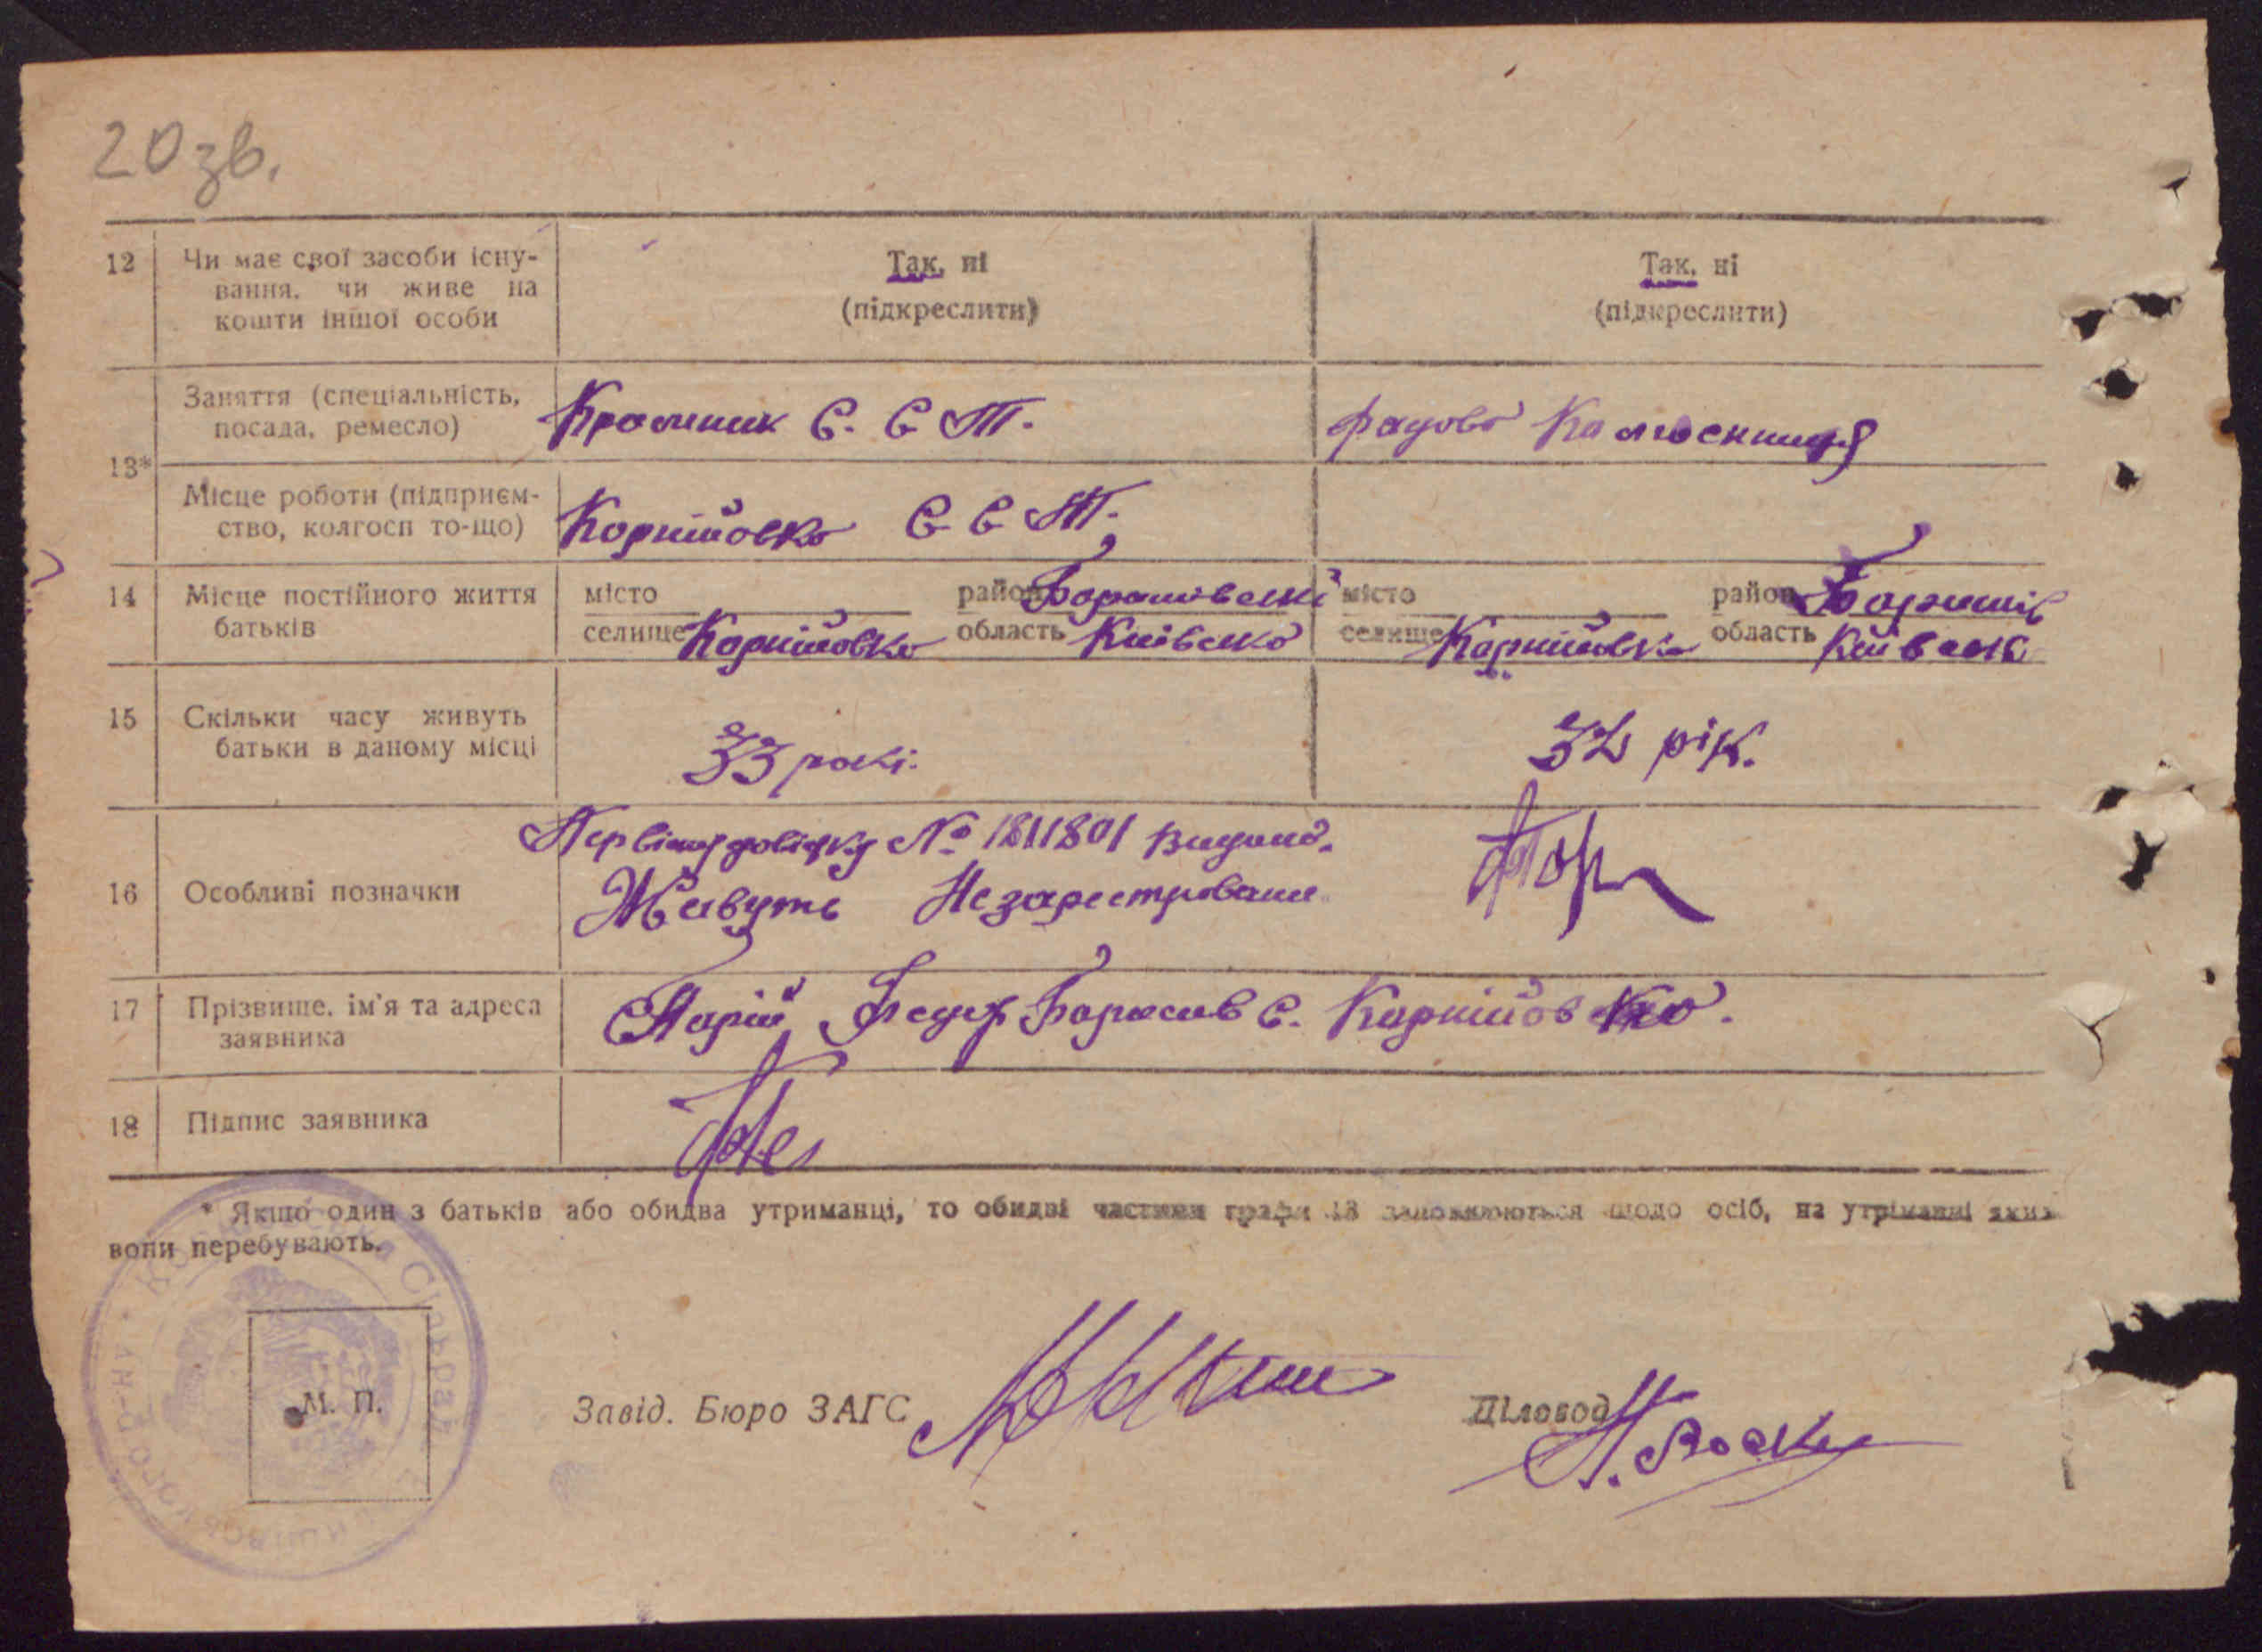 20 зв.
12 Чи має свої засоби існу-
вання, чи живе на
кошти іншої особи
Так, ні
(підкреслити)
Так, ні
(підкреслити)
13*
Заняття (спеціальність,
посада, ремесло)
Крамник С. С Т.
рядова Колгоспниця
Місце роботи (підприєм-
ство, колгосп то-що)
Корніївка С С Т.
14 Місце постійного життя
батьків
місто район Баришівський
селище Корніївка область Київська
місто район Баришів
селище Корніївка область Київська
15 Скільки часу живуть
батьки в даному місці
33 рокі.
32 рік.
16 Особливі позначки
№ 1811801 видано.
Живуть Незареєстровани
17 Прізвище, ім'я та адреса
заявника
Федір Борисов с. Корніївка.
18 Підпис заявника
* Якщо один з батьків або обидва утриманці, то обидві частини графи 13 заповнюються щодо осіб, на утріманні яких
вони перебувають.
М. П.
Завід. Бюро ЗАГС
Діловод